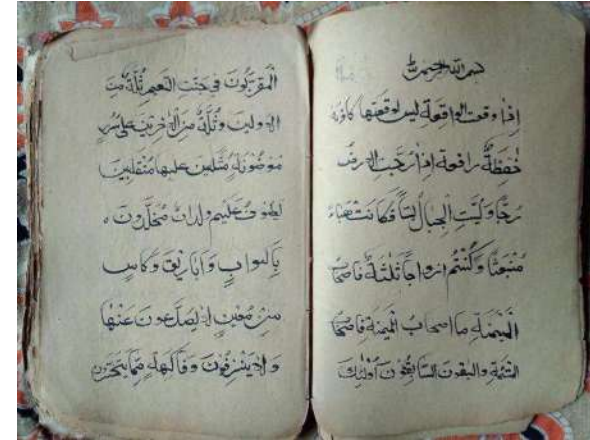 بسم الله الرحمن الرحيم
إذا وقعت الواقعة ليس لوقعتها كاذبة
خفظة رافعة إذا رجت الارض
رجا وبست الجبال بسا فكانت هباء
منبعثا وكنتم ازواجا ثلثة فاصحاب
الميمنة ما اصحاب الميمنة فاصحاب
المشئمة والبقون السابقون أولئك
المقربون في جنت النعيم ثلة من
الاولين وثلة من الاخرين على سرر
موضونة متكئين عليها متقابلين
يطوف عليهم ولدان مخلدون
باكواب وأباريق وكاس
من معين لا يصدعون عنها
ولا ينزفون وفاكهة مما يتخيرون